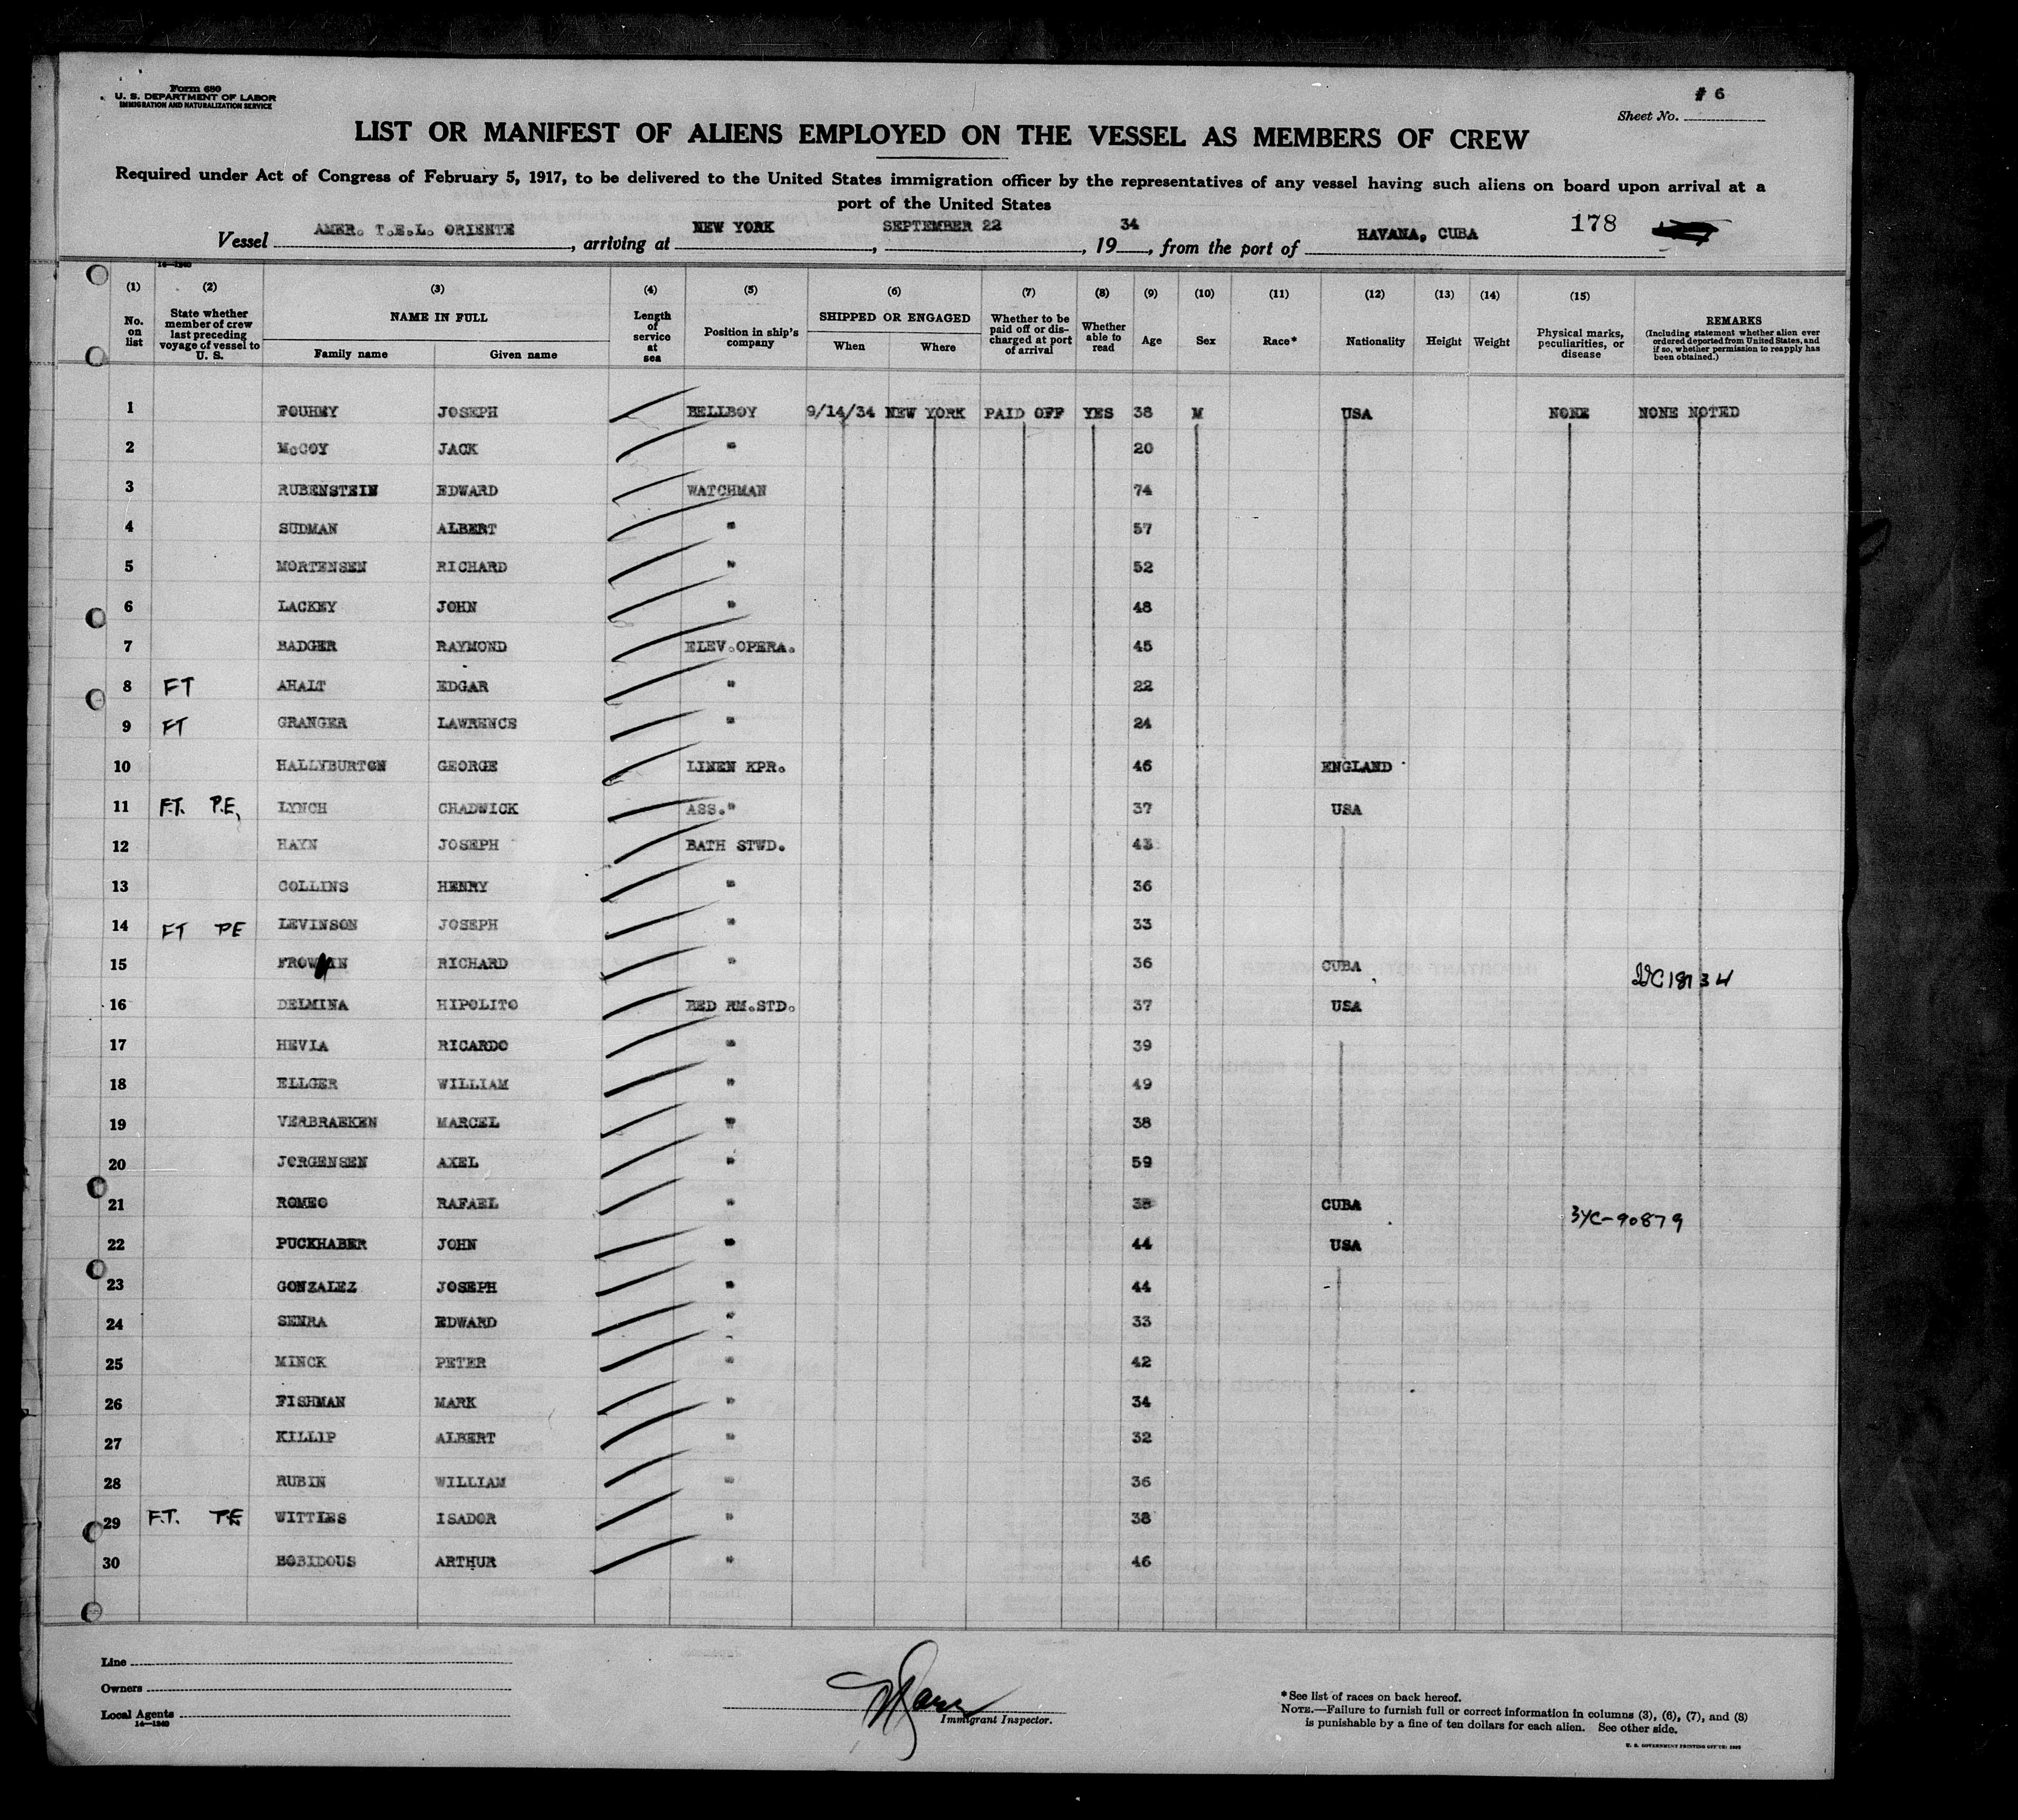 Form 680
U. S. DEPARTMENT OF LABOR
IMMIGRATION AND NATURALIZATION SERVICE
# 6
Sheet No.
LIST OR MANIFEST OF ALIENS EMPLOYED ON THE VESSEL AS MEMBERS OF CREW
Required under Act of Congress of February 5, 1917, to be delivered to the United States immigration officer by the representatives of any vessel having such aliens on board upon arrival at a
port of the United States
Vessel AMER. T.E.L. ORIENTE, arriving at NEW YORK, SEPTEMBER 22, 1934, from the port of HAVANA, CUBA 178
14—1240
(1) (2) (3) (4) (5) (6) (7) (8) (9) (10) (11) (12) (13) (14) (15)
No. on list State whether member of crew last preceding voyage of vessel to U. S. NAME IN FULL Family name Given name Length of service at sea Position in ship's company SHIPPED OR ENGAGED When Where Whether to be paid off or discharged at port of arrival Whether able to read Age Sex Race* Nationality Height Weight Physical marks, peculiarities, or disease REMARKS (Including statement whether alien ever ordered deported from United States, and if so, whether permission to reapply has been obtained.)
1 FOUHEY JOSEPH BELLBOY 9/14/34 NEW YORK PAID OFF YES 38 M USA NONE NONE NOTED
2 McCOY JACK " 20
3 RUBENSTEIN EDWARD WATCHMAN 74
4 SUDMAN ALBERT " 57
5 MORTENSEN RICHARD " 52
6 LACKEY JOHN " 48
7 BADGER RAYMOND ELEV.OPERA. 45
8 FT AHALT EDGAR " 22
9 FT GRANGER LAWRENCE " 24
10 HALLYBURTON GEORGE LINEN KPR. 46 ENGLAND
11 F.T. P.E. LYNCH CHADWICK ASS." 37 USA
12 HAYN JOSEPH BATH STWD. 43
13 COLLINS HENRY " 36
14 FT PE LEVINSON JOSEPH " 33
15 RICHARD " 36 CUBA
16 DELMINA HIPOLITO BED RM.STD. 37 USA
17 HEVIA RICARDO " 39
18 ELLGER WILLIAM " 49
19 VERBRAEKEN MARCEL " 38
20 JORGENSEN AXEL " 59
21 ROMEO RAFAEL " CUBA 3YC-90879
22 PUCKHABER JOHN " 44 USA
23 GONZALEZ JOSEPH " 44
24 SENRA EDWARD " 33
25 MINCK PETER " 42
26 FISHMAN MARK " 34
27 KILLIP ALBERT " 32
28 RUBIN WILLIAM " 36
29 F.T. P.E WITTLES ISADOR " 38
30 BOBIDOUS ARTHUR " 46
Line
Owners
Local Agents
14—1240
Immigrant Inspector.
*See list of races on back hereof.
NOTE.—Failure to furnish full or correct information in columns (3), (6), (7), and (8)
is punishable by a fine of ten dollars for each alien. See other side.